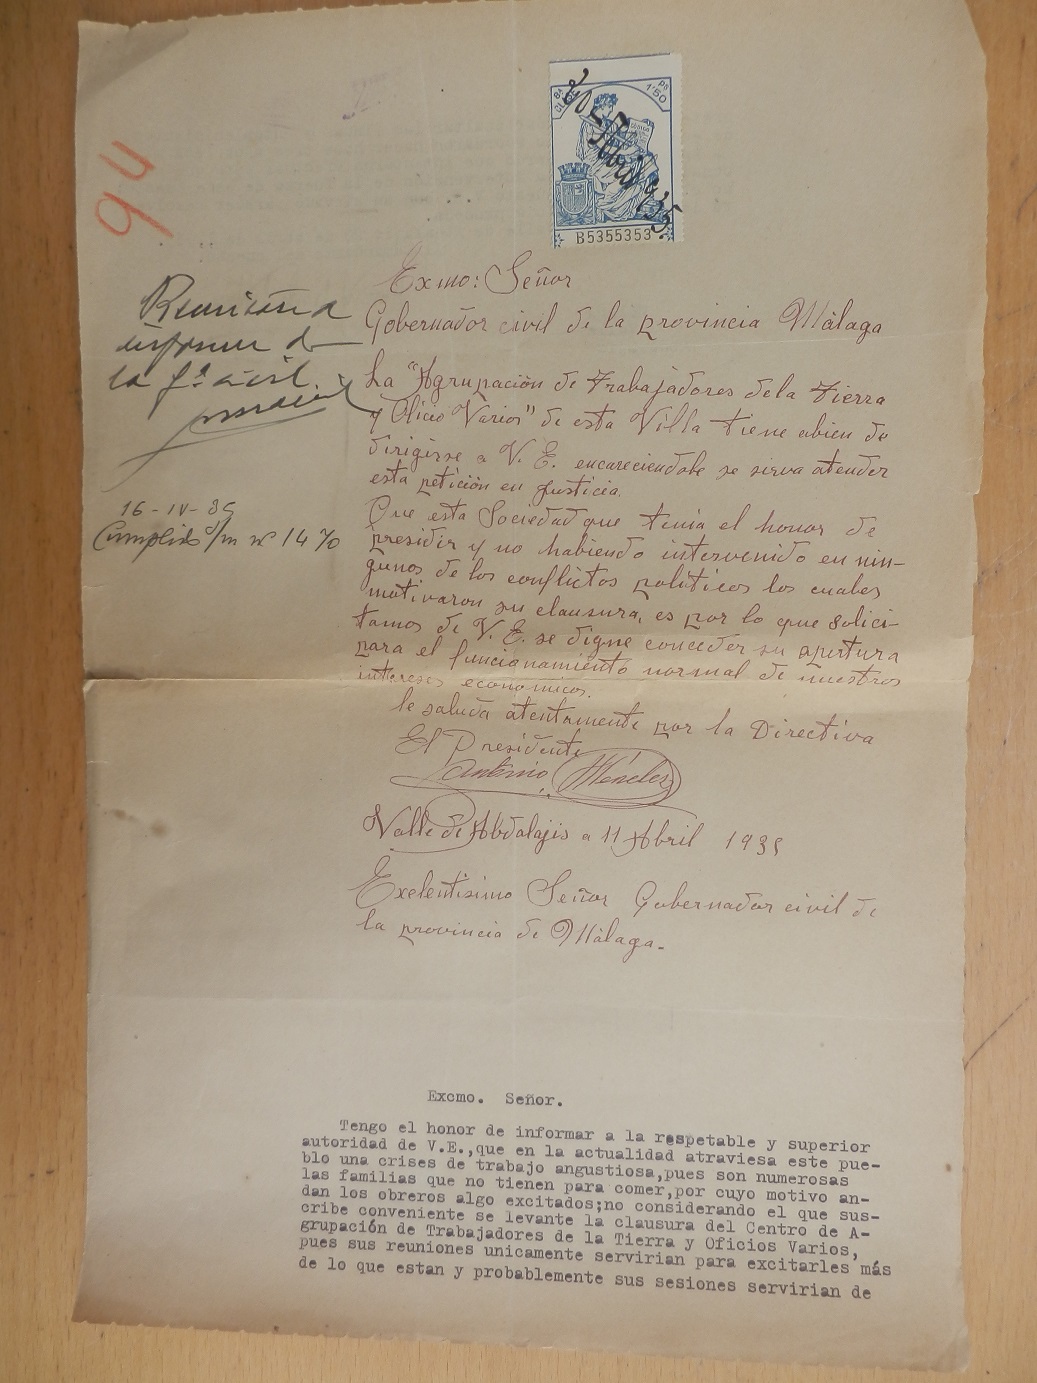 94
8ª
Pts
1'50
B5355353
Exmo: Señor
Gobernador civil de la provincia Málaga
informe de
la gª civil.
16-IV-35
Cumplido s/m nº 1470
La "Agrupación de Trabajadores de la Tierra
y Oficio Varios" de esta Villa tiene abien de
dirigirse a V. E. encareciendole se sirva atender
esta petición en justicia.
Que esta Sociedad que tenia el honor de
presidir y no habiendo intervenido en nin-
gunos de los conflictos políticos los cuales
motivaron su clausura, es por lo que solici-
tamos de V. E. se digne conceder su apertura
para el funcionamiento normal de nuestros
intereses economicos.
le saluda atentamente por la Directiva
El Presidente
Antonio
Valle de Abdalajis a 11 Abril 1935
Exelentisimo Señor Gobernador civil de
la provincia de Málaga.
Excmo. Señor.
Tengo el honor de informar a la respetable y superior
autoridad de V.E.,que en la actualidad atraviesa este pue-
blo una crises de trabajo angustiosa,pues son numerosas
las familias que no tienen para comer,por cuyo motivo an-
dan los obreros algo excitados;no considerando el que sus-
cribe conveniente se levante la clausura del Centro de A-
grupación de Trabajadores de la Tierra y Oficios Varios,
pues sus reuniones unicamente servirian para excitarles más
de lo que estan y probablemente sus sesiones servirian de